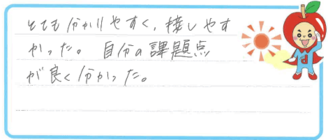 とても分かりやすく、接しやす
かった。自分の課題点
が良く分かった。